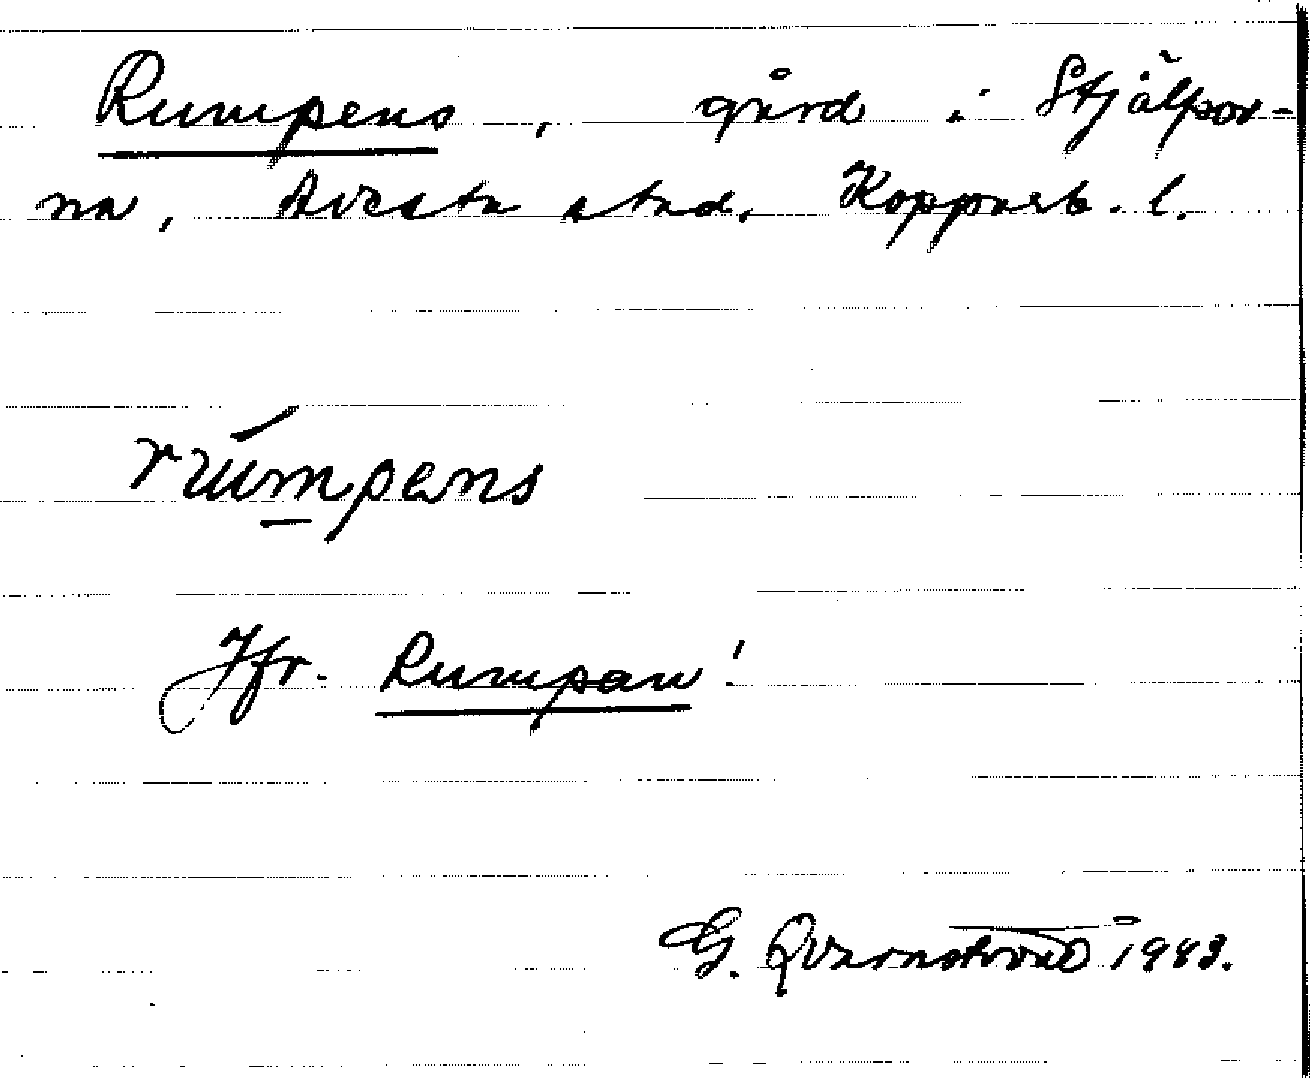 Rumpens, gård i Stjälpor-
na, Avesta stad, Kopparb. l.
rumpens
Jfr. Rumpan!
G. Qvarnström 1983.